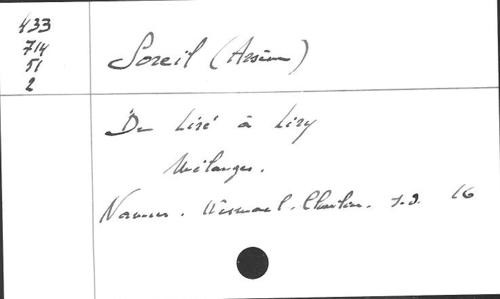 433
714
51
2
Soreil (Arsène)
De Liré à Liry
Mélanges.
Namur. Wesmael-Charlier. s.d. 16